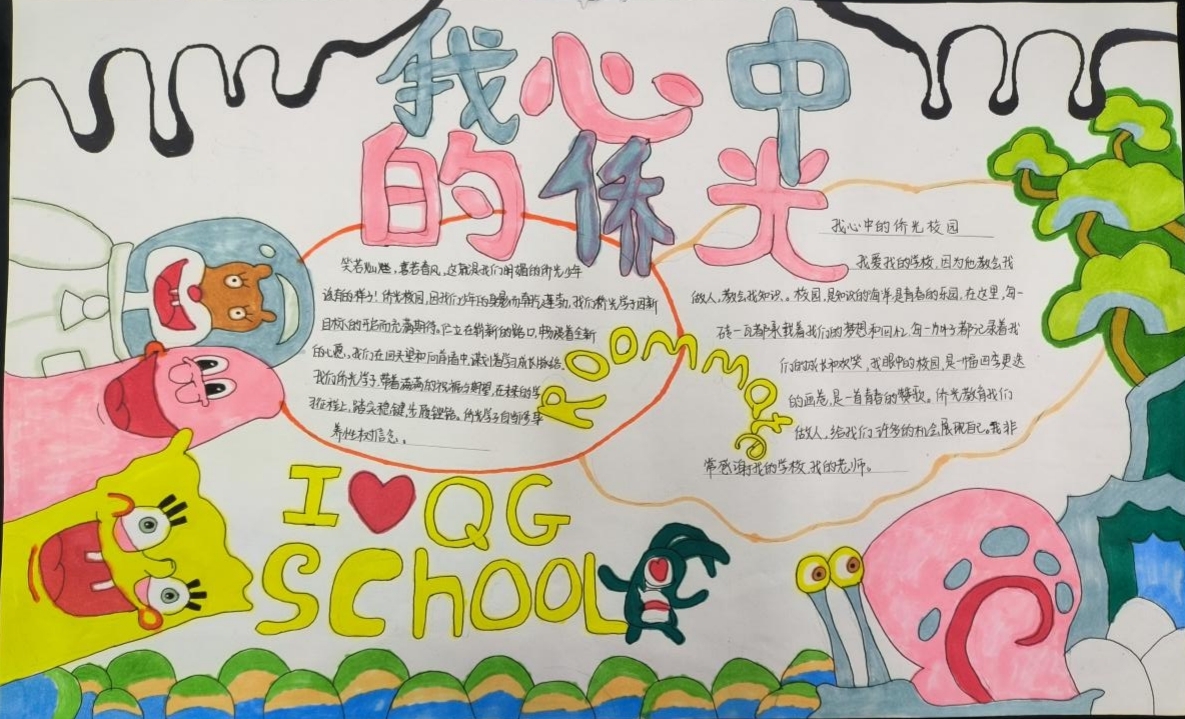 我心中
的侨光
笑若灿艳,喜若春风,这就是我们明媚的侨光少年
该有的样子!侨光校园,因我们少年的身影而朝气蓬勃,我们侨光学子因新
目标的开启而充满期待。伫立在崭新的路口,畅谈着全新
的心愿,我们在回头望和向前看中,
我们侨光学子,带着满满的祝福与期望,在操的学
养性树信念。
我心中的侨光校园
我爱我的学校,因为他教会我
做人,教会我知识。校园,是知识的海洋是青春的乐园,在这里,每一
砖一瓦都承载着我们的梦想和回忆,每一力才都记录着我
们的成长和欢笑,我眼中的校园,是一幅四季更迭
的画卷,是一首青春的赞歌。侨光教育我们
做人,给我们许多的机会展现自己。我非
常感谢我的学校,我的老师。
Roommate
I QG
SChOOL